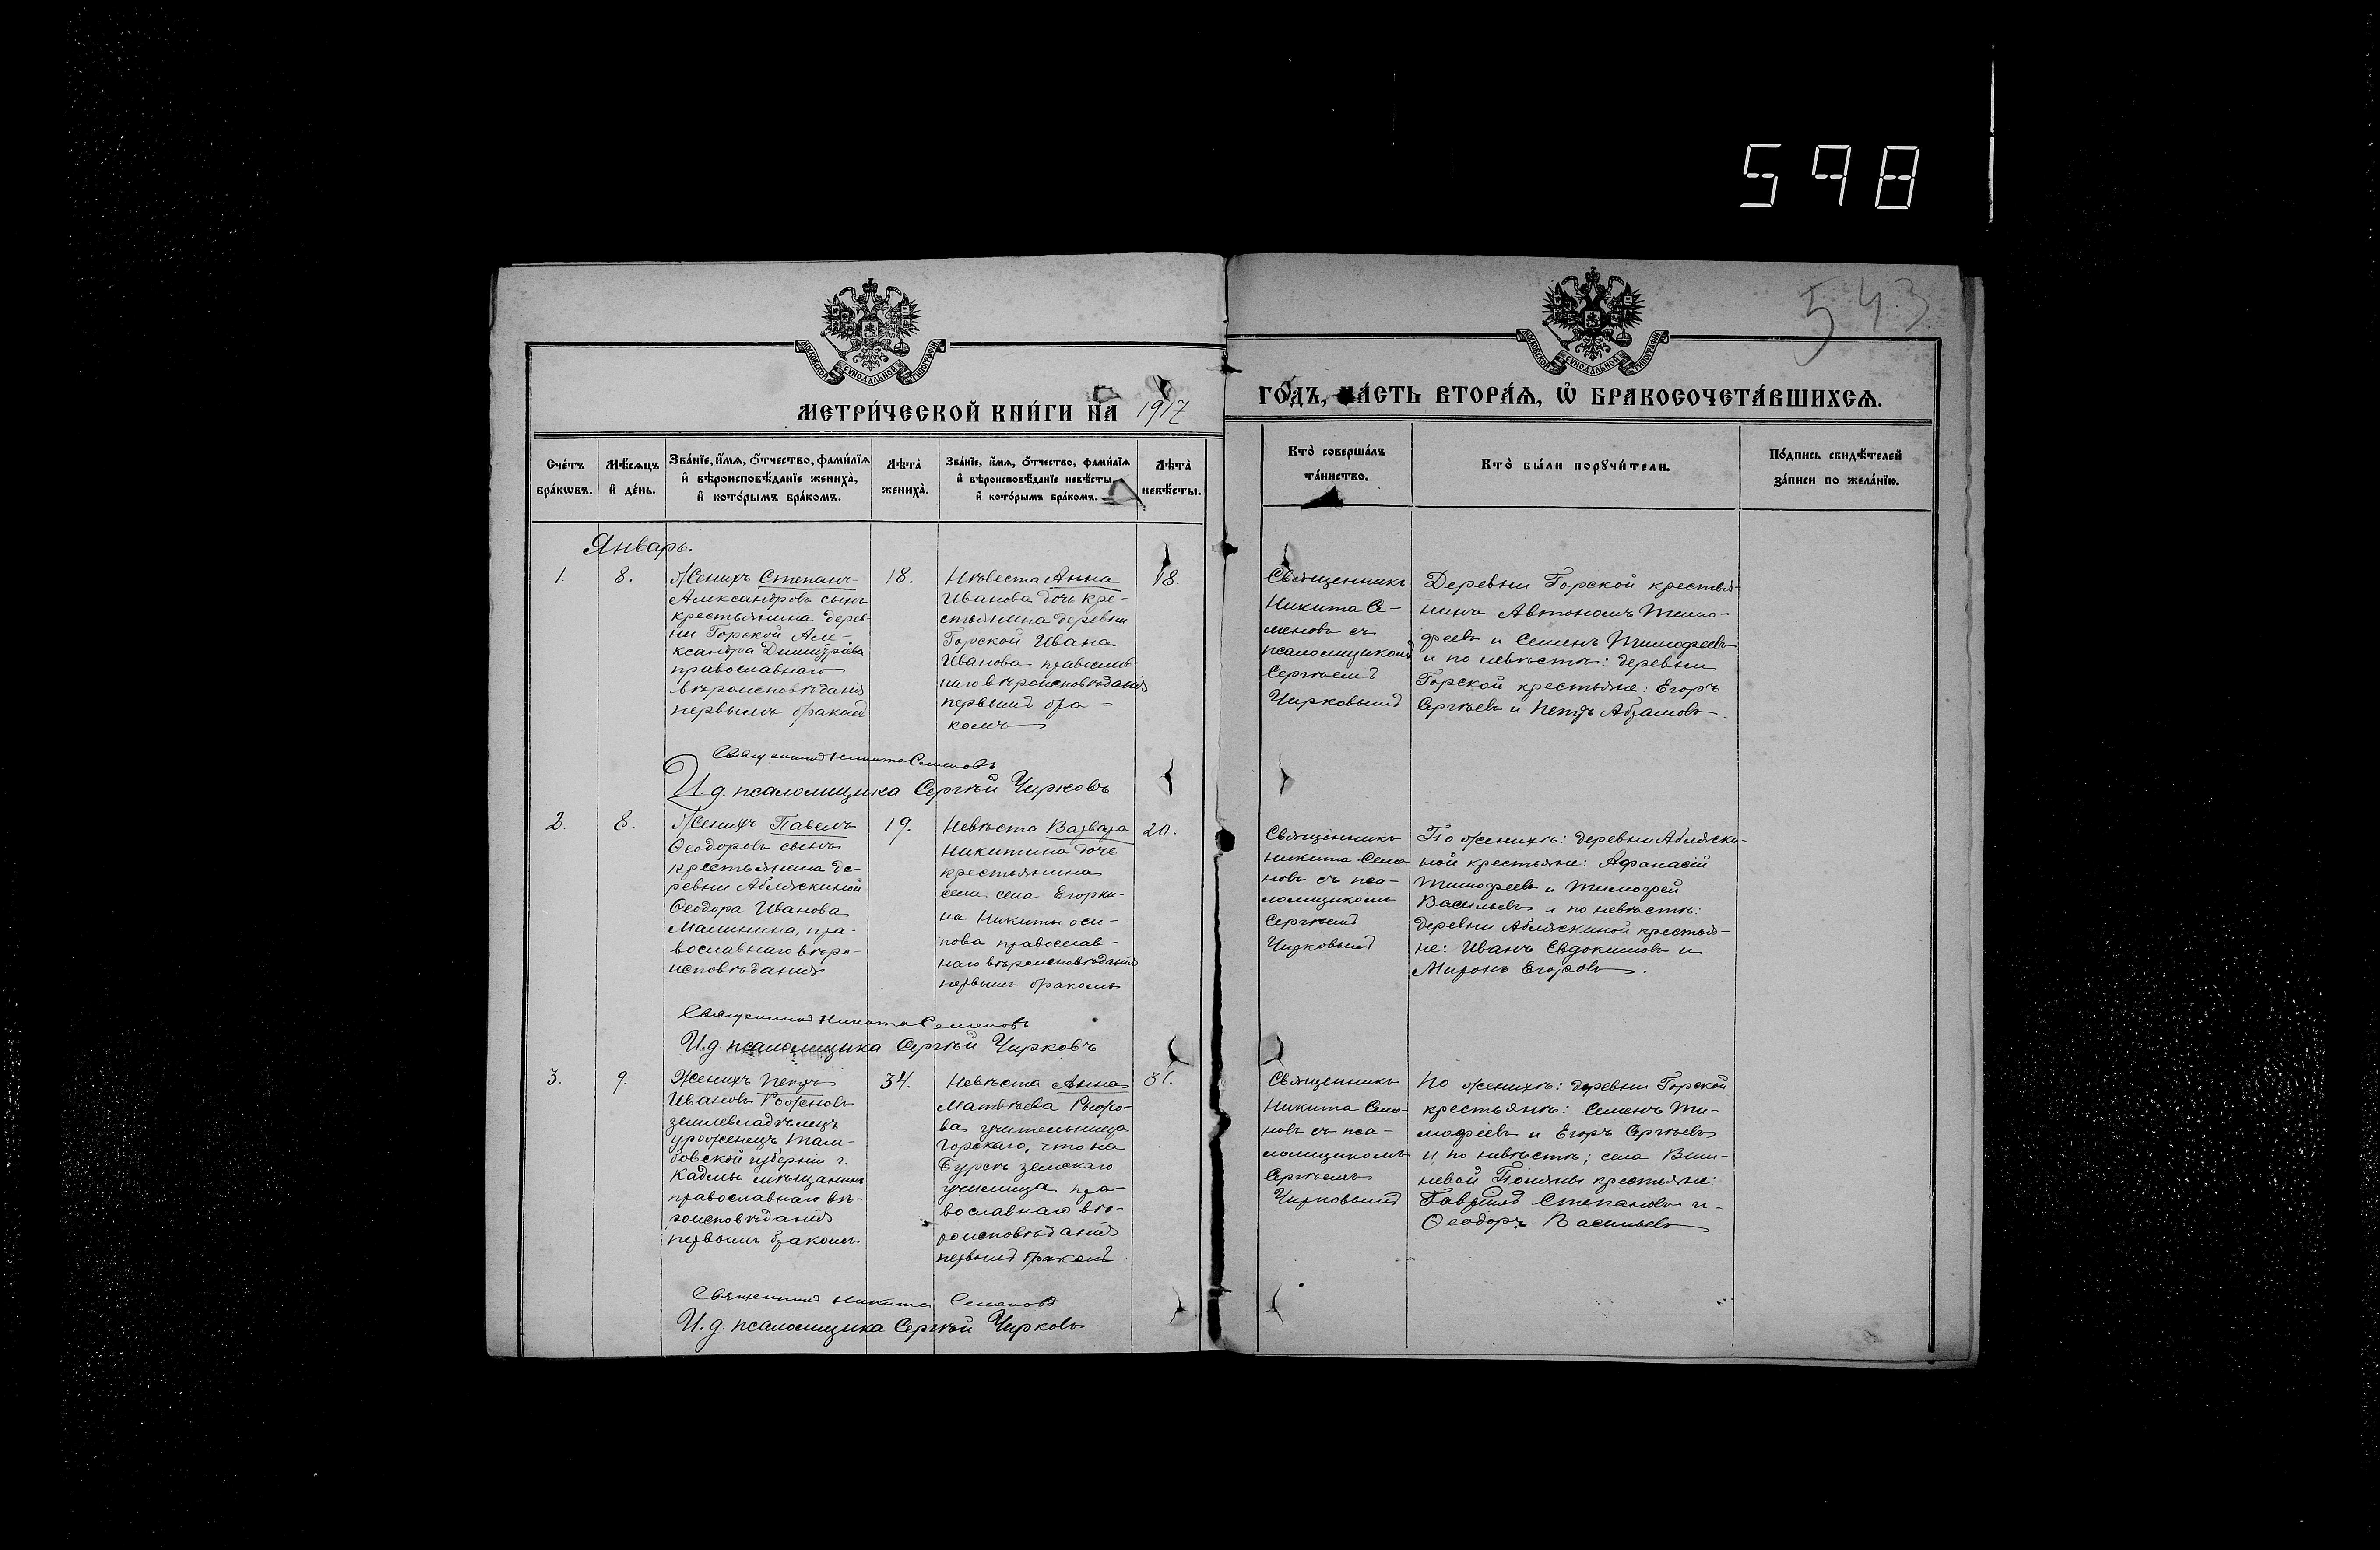 598
543
МОСКОВСКОЙ СѴНОДАЛЬНОЙ ТИПОГРАФІИ
МОСКОВСКОЙ СѴНОДАЛЬНОЙ ТИПОГРАФІИ
МЕТРИ́ЧЕСКОЙ КНИ́ГИ НА 1917
ГО́ДЪ, ЧА́СТЬ ВТОРА́Ѧ, Ѡ БРАКОСОЧЕТА́ВШИХСѦ.
Сче́тъ бра́кѡвъ.
Мѣ́сѧцъ и҆ де́нь.
Зва́нїе, и҆́мѧ, ѻ҆́тчество, фами́лїѧ
и҆ вѣроисповѣ́данїе жениха̀,
и҆ кото́рымъ бра́комъ.
Лѣта̀ жениха̀.
Зва́нїе, и҆́мѧ, ѻ҆́тчество, фами́лїѧ
и҆ вѣроисповѣ́данїе невѣ́сты,
и҆ кото́рымъ бра́комъ.
Лѣта̀ невѣ́сты.
Кто̀ соверша́лъ
та́инство.
Кто̀ бы́ли порꙋчи́тели.
По́дпись свидѣ́телей
за́писи по жела́нїю.
Январь.
1.
8.
Женихъ Степанъ
Александровъ сынъ
крестьянина дерев-
ни Горской Але-
ксандра Димитріева
православнаго
вѣроисповѣданія
первымъ бракомъ
18.
Невѣста Анна
Иванова дочь кре-
стьянина деревни
Горской Ивана
Иванова православ-
наго вѣроисповѣданія
первымъ бра-
комъ
18.
Священникъ
Никита Се-
меновъ съ
псаломщикомъ
Сергѣемъ
Чирковымъ
Деревни Горской крестья-
нинъ Автономъ Тимо-
феевъ и Семенъ Тимофеевъ
и по невѣстѣ: деревни
Горской крестьяне: Егоръ
Сергѣевъ и Петръ Абрамовъ.
Священникъ Никита Семеновъ
И. д. псаломщика Сергѣй Чирковъ
2.
8.
Женихъ Павелъ
Ѳеодоровъ сынъ
крестьянина де-
ревни Абляскиной
Ѳеодора Иванова
Малинина, пра-
вославнаго вѣро-
исповѣданія
19.
Невѣста Варвара
Никитина дочь
крестьянина
села села Егорки-
на Никиты Оси-
пова православ-
наго вѣроисповѣданія
первымъ бракомъ
20.
Священникъ
Никита Семе-
новъ съ пса-
ломщикомъ
Сергѣемъ
Чирковымъ
По женихѣ: деревни Абляски-
ной крестьяне: Афанасій
Тимофеевъ и Тимофей
Васильевъ и по невѣстѣ:
деревни Абляскиной крестья-
не: Иванъ Евдокимовъ и
Миронъ Егоровъ.
Священникъ Никита Семеновъ
И. д. псаломщика Сергѣй Чирковъ
3.
9.
Женихъ Петръ
Ивановъ Рожновъ
землевладѣлецъ
уроженецъ Там-
бовской губерніи г.
Кадмы мѣщанинъ
православнаго вѣ-
роисповѣданія
первымъ бракомъ
34.
Невѣста Анна
Матвѣева
учительница
Горскаго, что на
Бурсѣ земскаго
училища пра-
вославнаго вѣ-
роисповѣданія
первымъ бракомъ
31.
Священникъ
Никита Семе-
новъ съ пса-
ломщикомъ
Сергѣемъ
Чирковымъ
По женихѣ: деревни Горской
крестьяне: Семенъ Ти-
мофеевъ и Егоръ Сергѣевъ
и по невѣстѣ; села Виш-
невой Поляны крестьяне:
Гавріилъ Степановъ и
Ѳеодоръ Васильевъ
Священникъ Никита Семеновъ
И. д. псаломщика Сергѣй Чирковъ